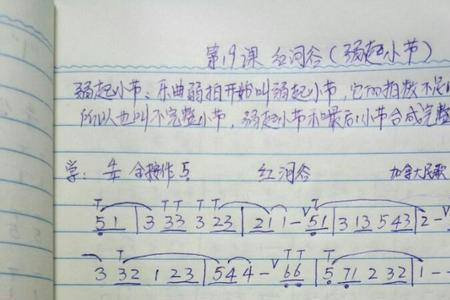 第19课 红河谷(弱起小节)
弱起小节、乐曲弱拍开始叫弱起小节,它的拍数不足
所以也叫不完整小节,弱起小节和最后小节合成完整
红河谷 加拿大民歌
5 1 | 3 3 3 3 2 3 | 2 1 1 - V 5 1 | 3 1 3 5 4 3 | 2 - V
3 3 2 1 2 3 | 5 4 4 - V 6 6 | 5 7 1 2 3 2 | 1 - -